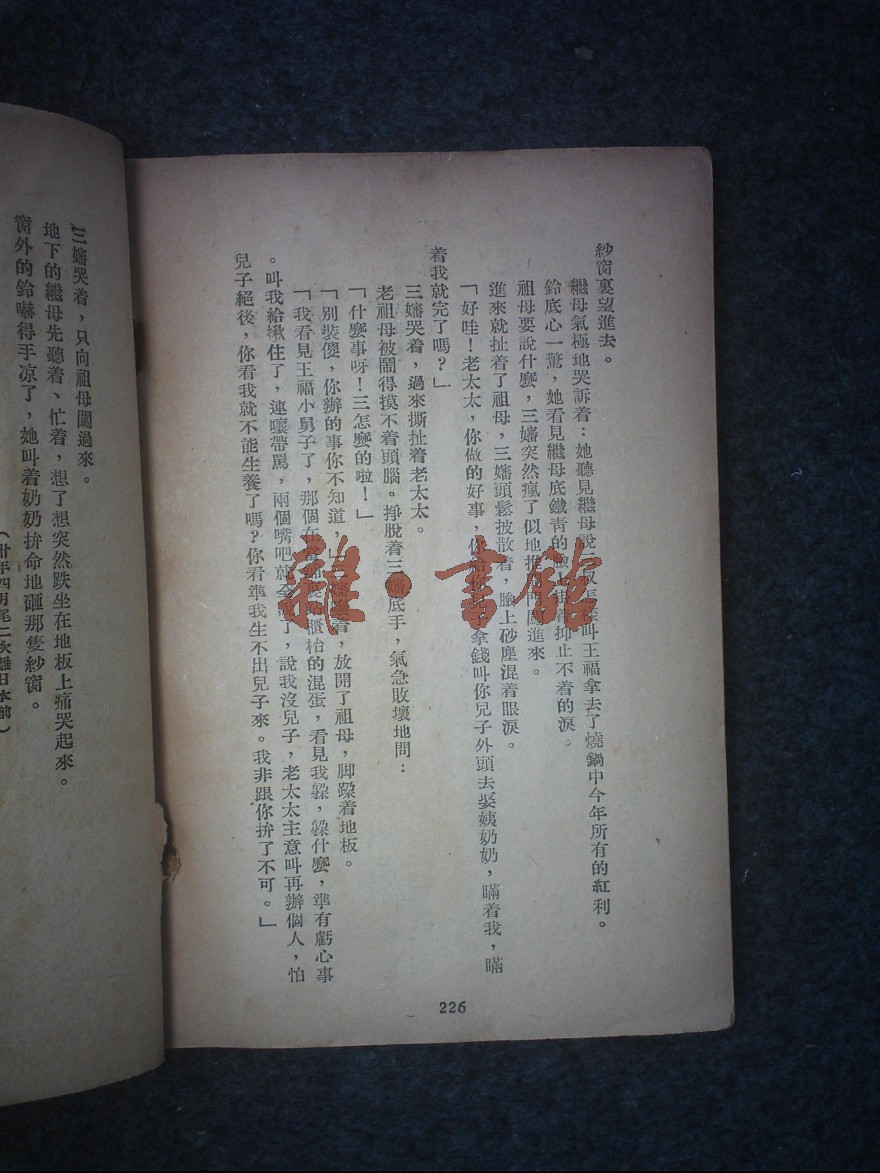 紗窗裏望進去。
繼母氣極地哭訴着：她聽見繼母說叔怎樣叫王福拿去了燒鍋中今年所有的紅利。
鈴底心一驚，她看見繼母底鐵青的臉上掛着抑止不着的淚。
祖母要說什麼，三嬸突然瘋了似地推開門闖進來。
進來就扯着了祖母，三嬸頭鬆披散着，臉上砂塵混着眼淚。
「好哇！老太太，你做的好事，你給你兒子拿錢叫你兒子外頭去娶姨奶奶，瞞着我，瞞
着我就完了嗎？」
三嬸哭着，過來撕扯着老太太。
老祖母被鬧得摸不着頭腦。掙脫着三嬸底手，氣急敗壞地問：
「什麼事呀！三怎麼的啦！」
「別裝傻，你辦的事你不知道，」三嬸嚷着，放開了祖母，脚跺着地板。
「我看見王福小舅子了，那個在櫃枱的混蛋，看見我躲，躲什麼，準有虧心事
。叫我給揪住了，連嚷帶罵，兩個嘴吧就全說了，說我沒兒子，老太太主意叫再辦個人，怕
兒子絕後，你看我就不能生養了嗎？你看準我生不出兒子來。我非跟你拚了不可。」
226
三嬸哭着，只向祖母闖過來。
地下的繼母先聽着、忙着，想了想突然跌坐在地板上痛哭起來。
窗外的鈴嚇得手凉了，她叫着奶奶拚命地砸那隻紗窗。
（卅年四月尾二次離日本前）
雜·書館